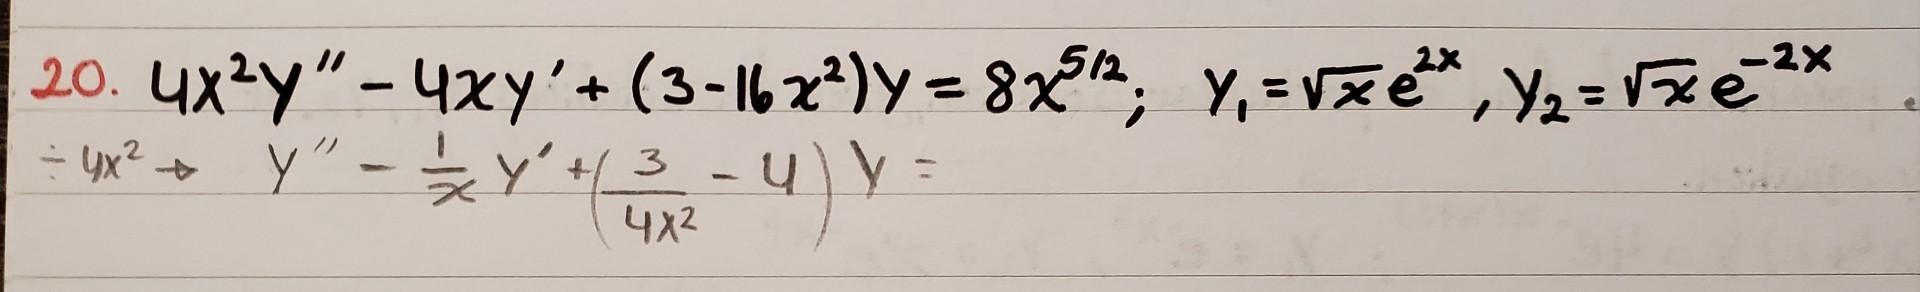 20. 4x²y″ − 4xy′ + (3-16x²)y = 8x^5/2; y₁ = √x e^2x, y₂ = √x e^−2x
÷ 4x² → y″ − 1/x y′ + (3/4x² − 4) y =